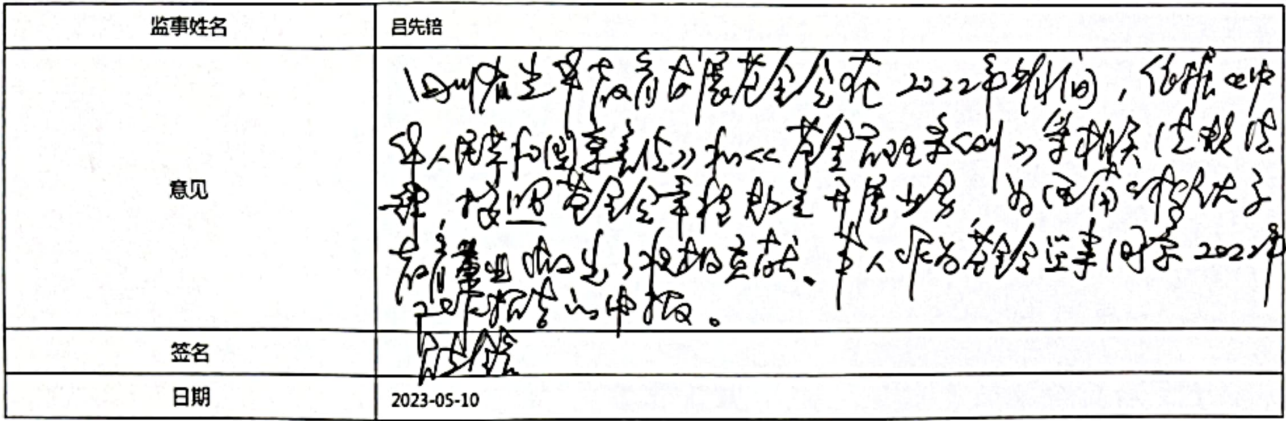 监事姓名 吕先锫
意见
四川省 教育发展基金会在2022年期间，依据《中
华人民共和国慈善法》和《基金会管理条例》等相关法规法
律，按照基金会章程 开展业务，为西南 大学
教育事业 出了 贡献。本人作为基金会监事同意2022年
年度 报告的申报。
签名 吕先锫
日期 2023-05-10